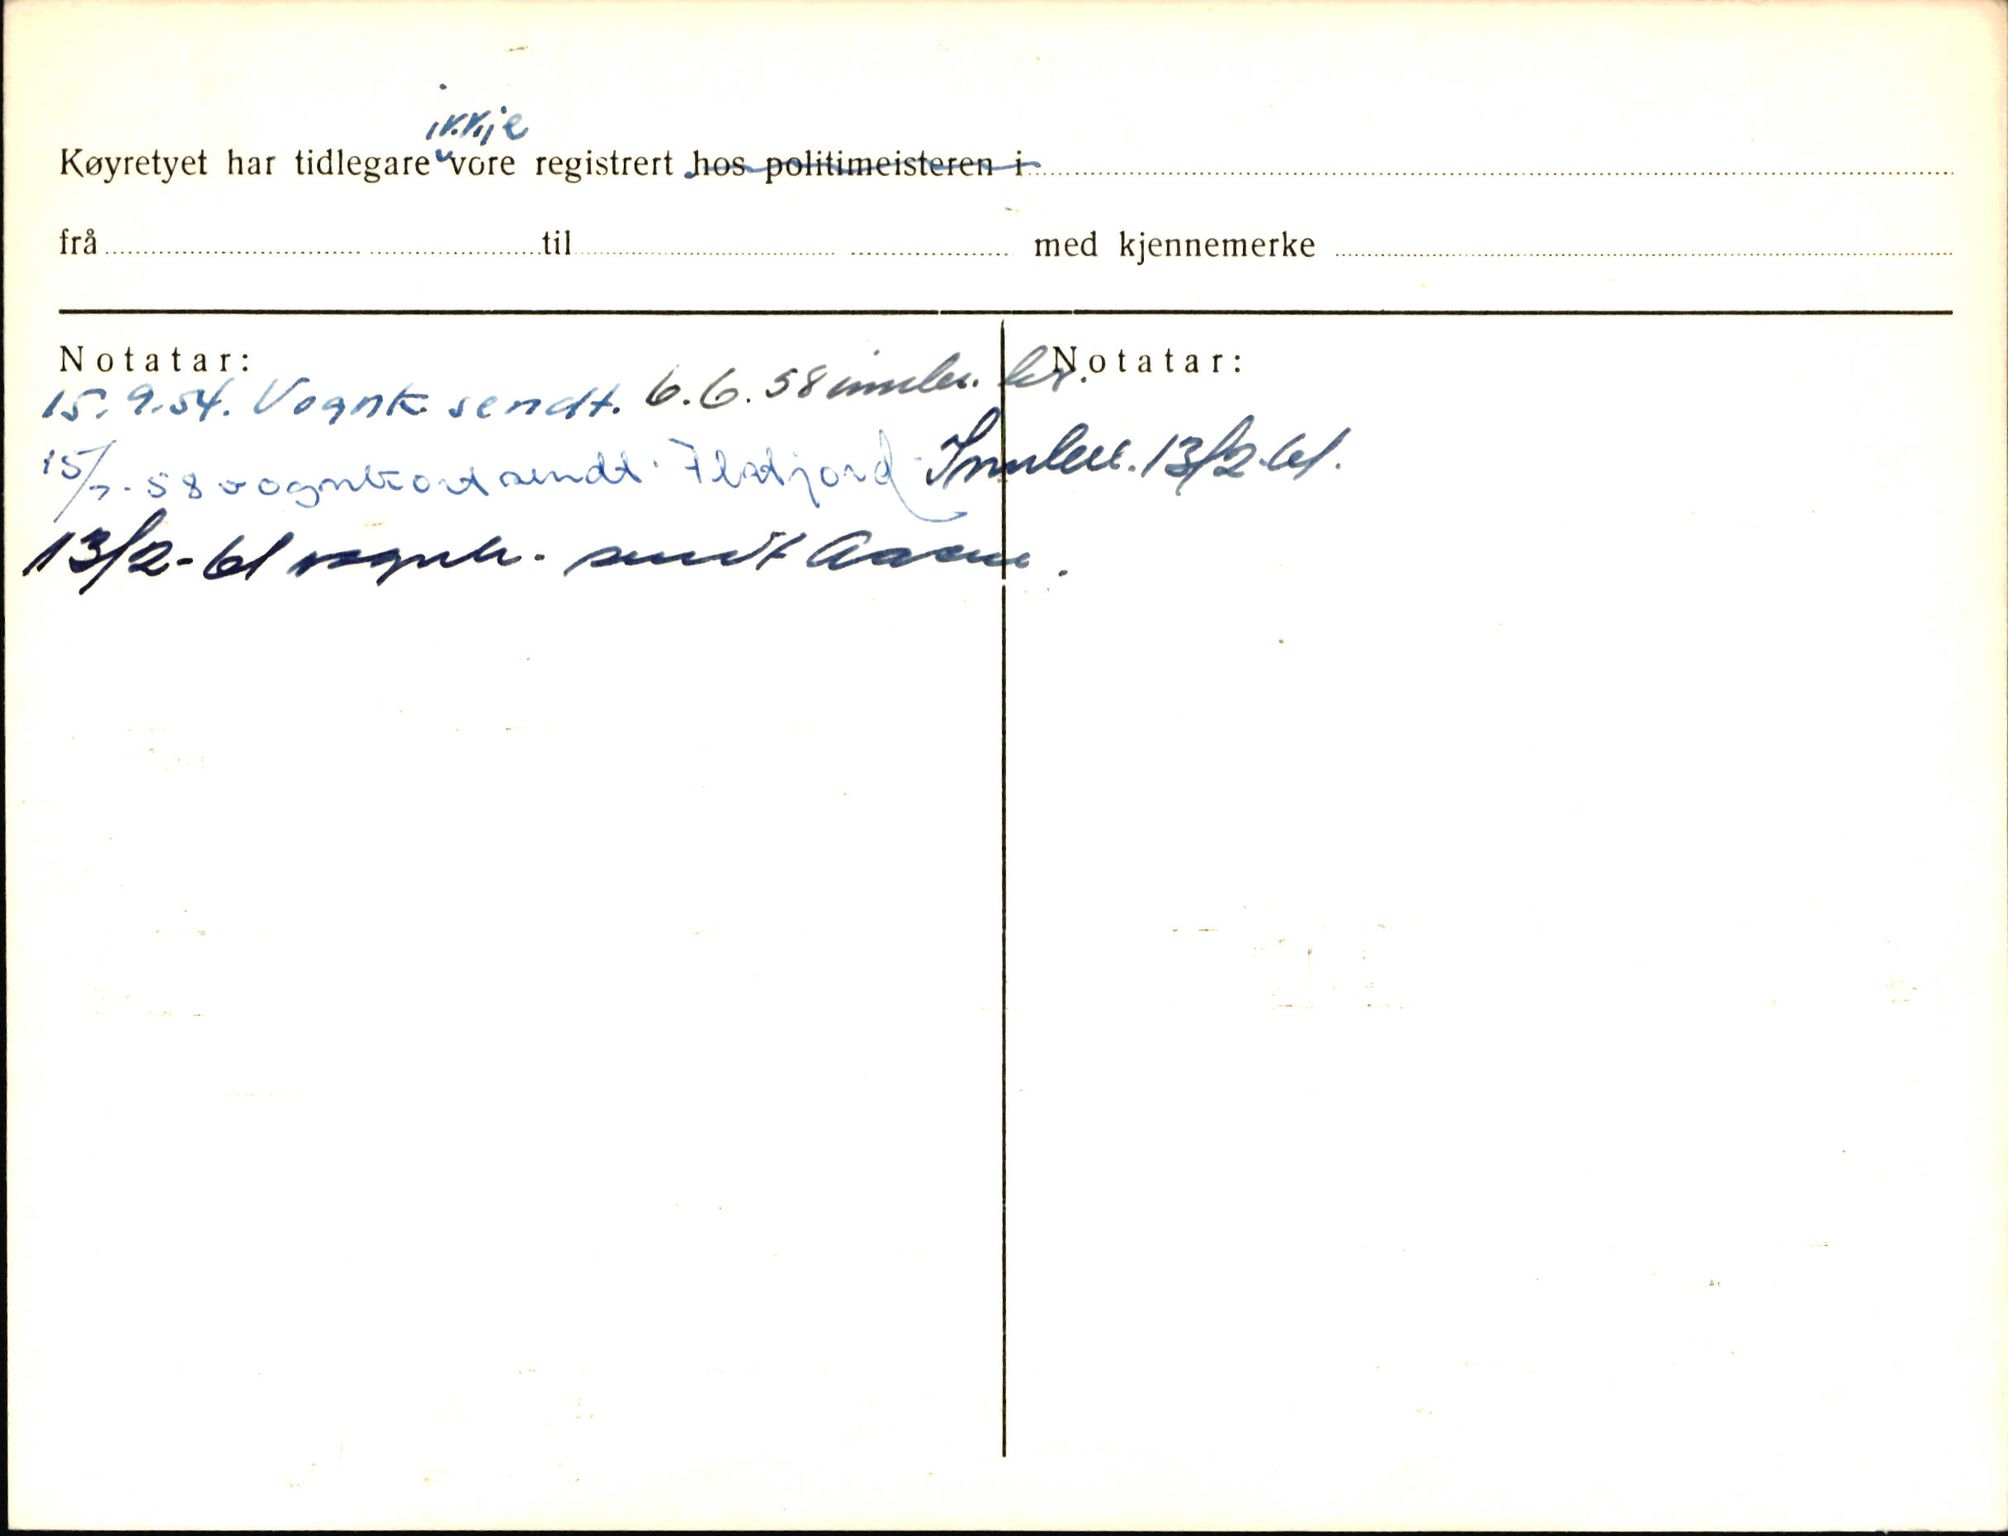 Køyretyet har tidlegare ikkje vore registrert hos politimeisteren i
frå til med kjennemerke
Notatar:
Notatar:
15.9.54. Vognk. sendt. 6.6.58 innlev.
15/7-58 vognkort sendt Innlev. 13/2-61.
13/2-61 vognk. sendt